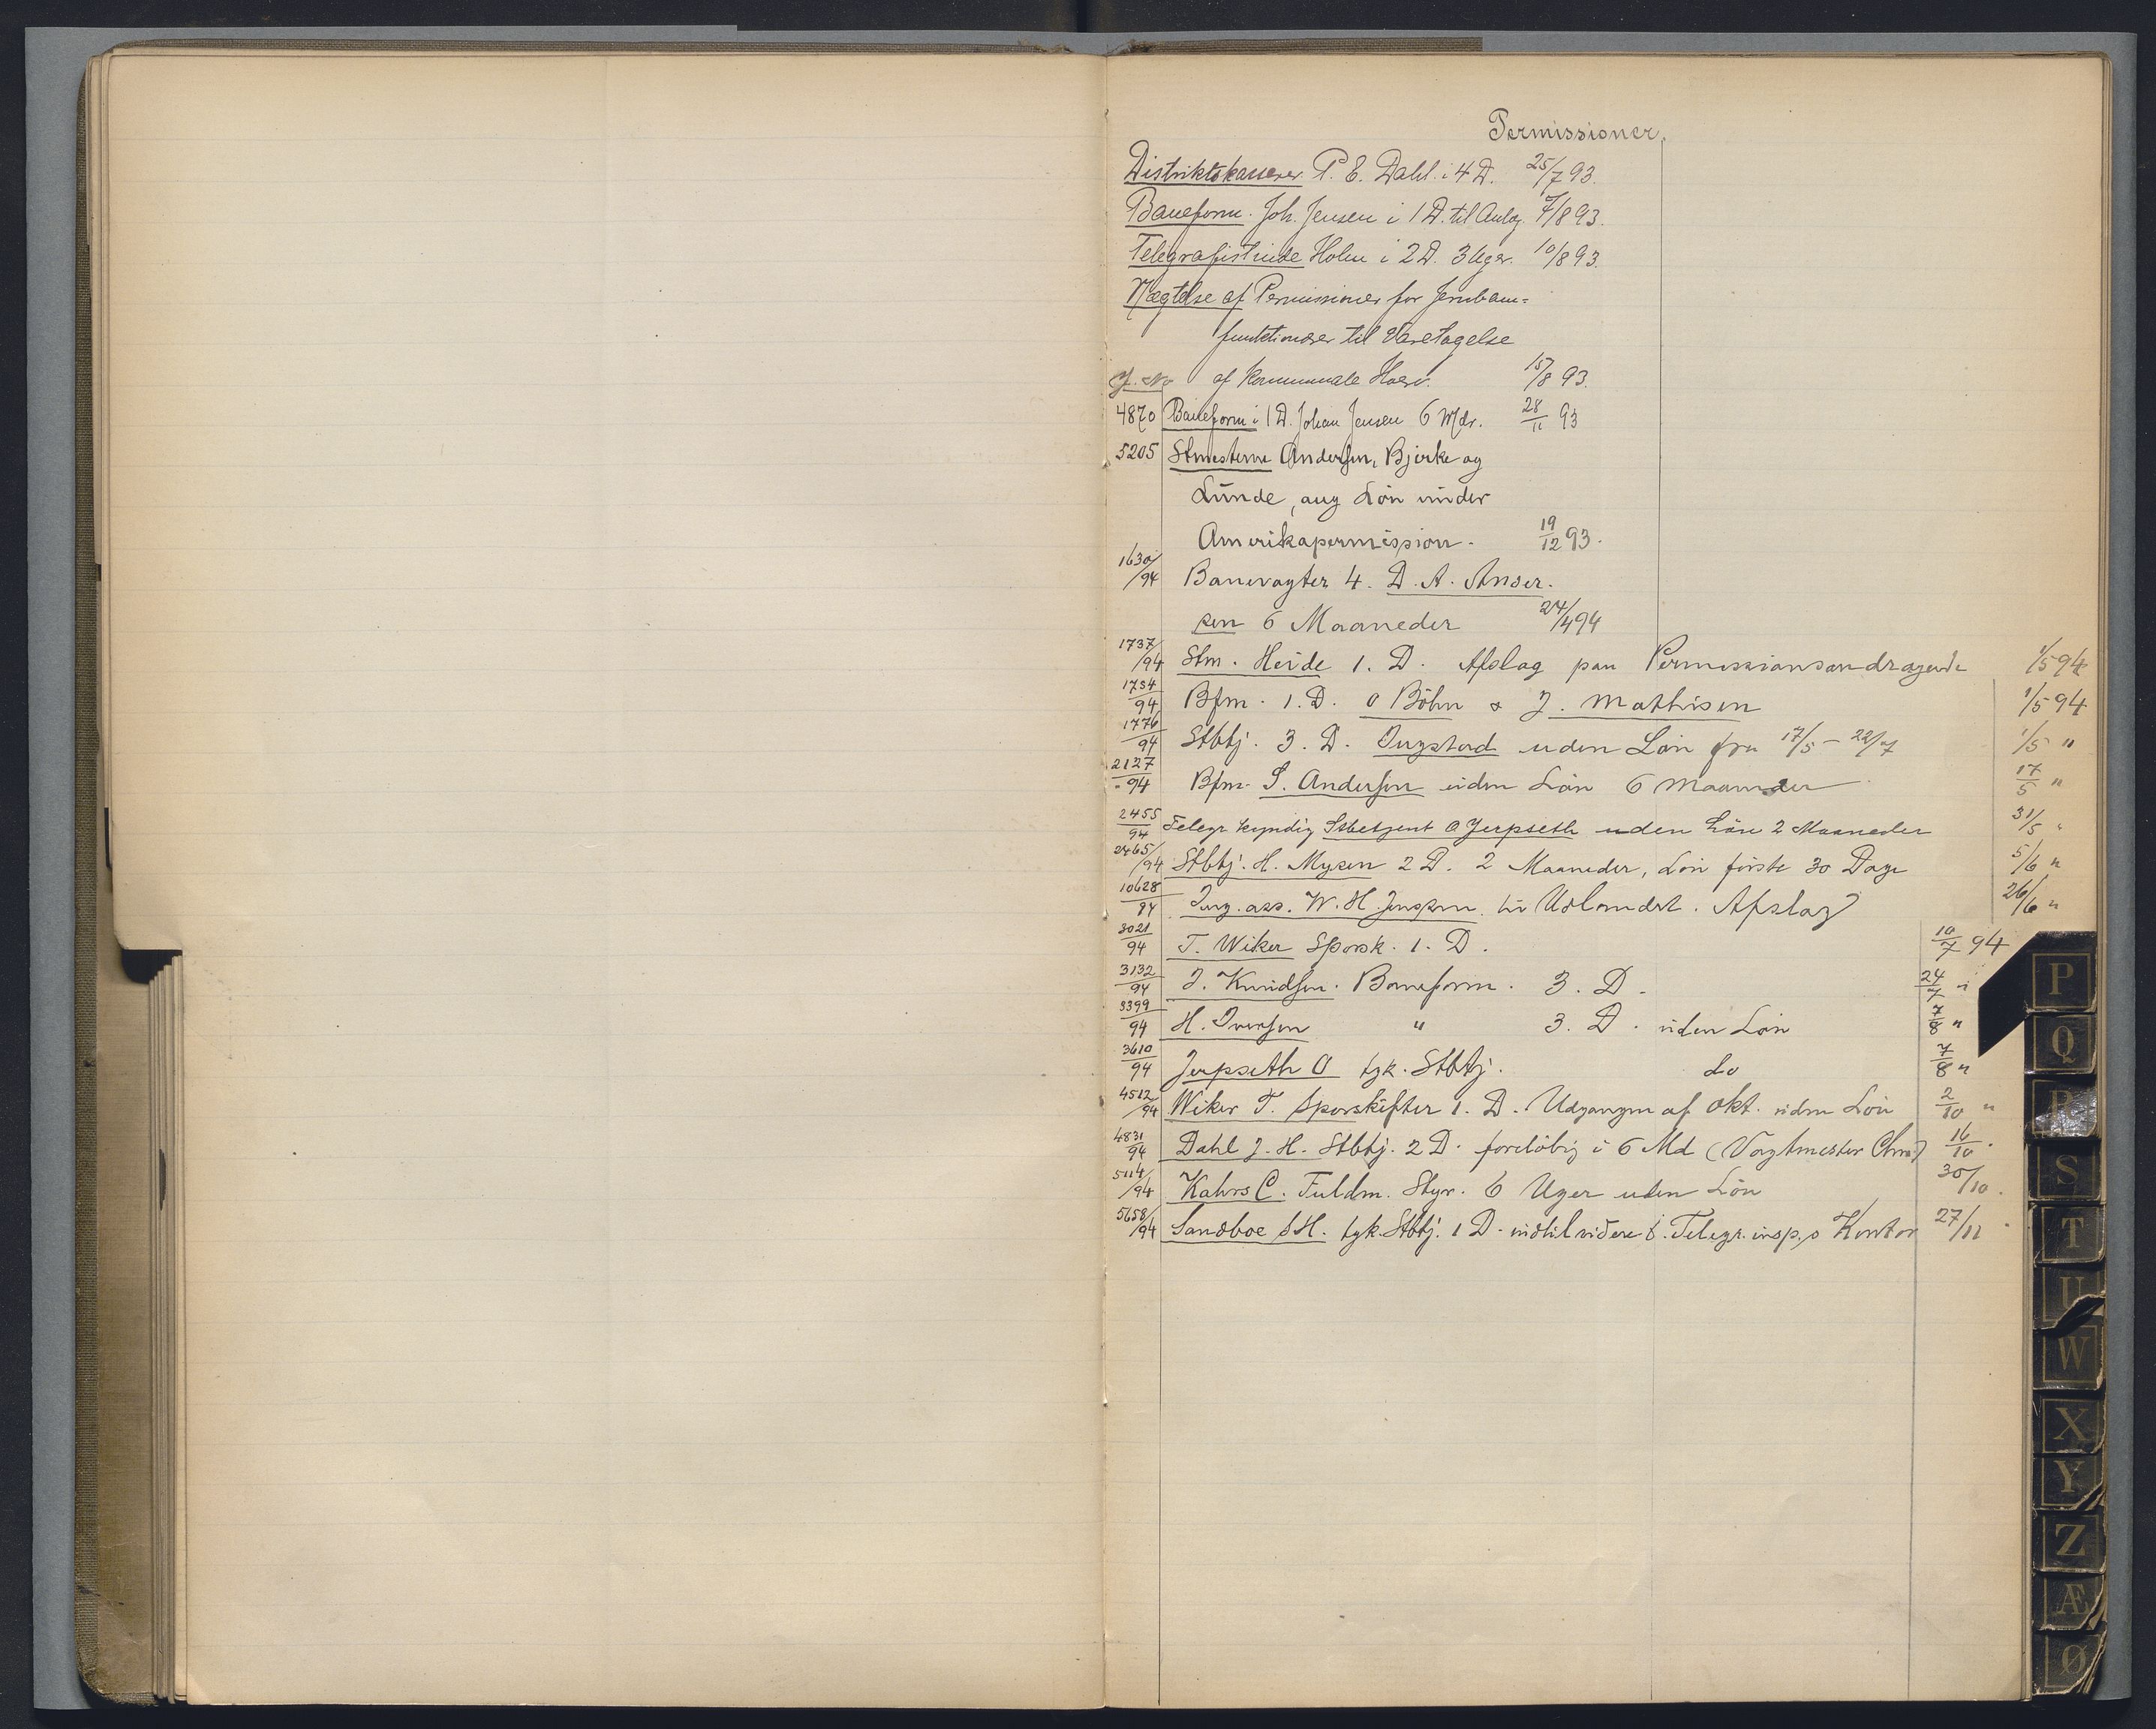 Permissioner.
Distriktskasserer P. E. Dahl i 4 D. 25/7 93.
Baneform. Joh. Jensen i 1 D. til Anlæg 7/8 93.
Telegrafistinde Holm i 2 D. 3 Uger. 10/8 93.
Nægtelse af Permissioner for Jernban=
funktionærer til Varetagelse
J. No af kommunale Hverv. 15/8 93.
4870 Baneform i 1 D. Johan Jensen 6 Mdr. 28/11 93
5205 Stmesterne Andersen, Bjerke og
Lunde, ang Lön under
Amerikapermission. 19/12 93.
1630/94 Banevagter 4. D. A. Anders-
sen 6 Maaneder 24/4 94
1737/94 Stm. Heide 1. D. Afslag paa Permissionsandragende 1/5 94
1754/94 Bfm. 1. D. O Böhn & J. Mathisen 1/5 94
1776/94 Stbtj. 3. D. uden Lön fra 17/5 - 22/7 1/5 "
2127/94 Bfm. S. Andersen uden Lön 6 Maaneder 17/5 "
2455/94 Telegr. kyndig Stbetjent O Jerpseth uden Lön 2 Maaneder 31/5 "
2465/94 Stbtj. H. Mysen 2 D. 2 Maaneder, Lön første 30 Dage 5/6 "
10628/94 Ing. ass. W. H. Jenssen til Udlandet. Afslag 26/6 "
3021/94 T. Wiker Sporsk. 1. D. 10/7 94
3132/94 J. Knudsen. Baneform. 3. D. 24/7 "
3399/94 H. Iversen " 3. D. uden Lön 7/8 "
3610/94 Jerpseth O tgk. Stbtj. do 7/8 "
4512/94 Wiker T. Sporskifter 1. D. Udgangen af Okt. uden Lön 2/10 "
4831/94 Dahl J. H. Stbtj. 2 D. foreløbig i 6 Md (Vogtmester Chra) 16/10 "
5114/94 Kahrs C. Fuldm. Styr. 6 Uger uden Lön 30/10 "
5658/94 Sandboe S H. tgk. Stbtj. 1 D. indtil videre i Telegr. insp.s Kontor 27/11 "
P
Q
R
S
T
U
W
X
Y
Z
Æ
Ø